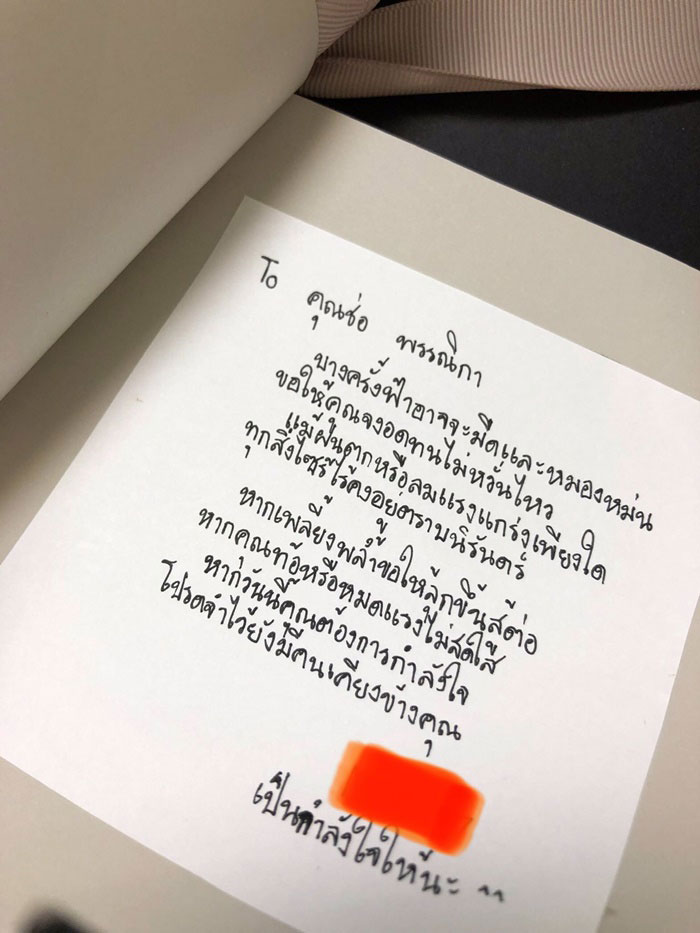 To คุณช่อ พรรณิกา
บางครั้งฟ้าอาจจะมืดและหมองหม่น
ขอให้คุณจงอดทนไม่หวั่นไหว
แม้ฝนตกหรือลมแรงแกร่งเพียงใด
ทุกสิ่งไซร้ไร้คงอยู่ตราบนิรันดร์
หากเพลี่ยงพล้ำขอให้ลุกขึ้นสู้ต่อ
หากคุณท้อหรือหมดแรงไม่สดใส
หากวันนี้คุณต้องการกำลังใจ
โปรดจำไว้ยังมีคนเคียงข้างคุณ
เป็นกำลังใจให้นะ ^^